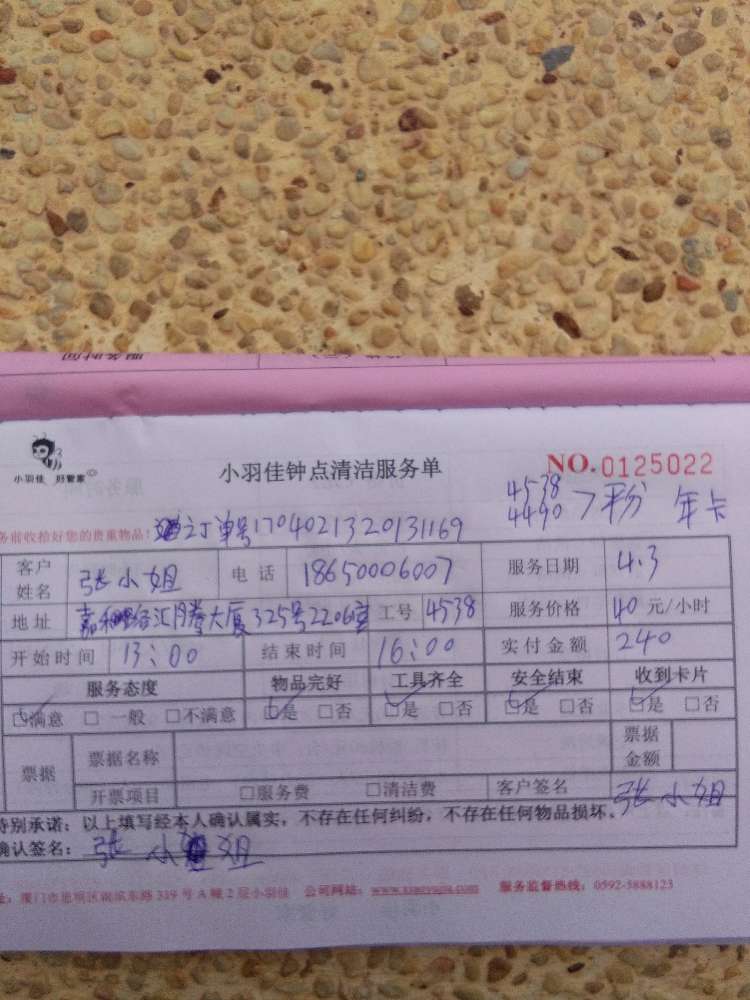 小羽佳 好管家
小羽佳钟点清洁服务单
NO.0125022
4538
4490 > 粉 年卡
务前收拾好您的贵重物品！
订单号1704021320131169
客户姓名 张小姐 电话 18650006007 服务日期 4.3
地址 大厦325号2206室 工号 4538 服务价格 40 元/小时
开始时间 13:00 结束时间 16:00 实付金额 240
服务态度 物品完好 工具齐全 安全结束 收到卡片
☑满意 □一般 □不满意 ☑是 □否 ☑是 □否 ☑是 □否 ☑是 □否
票据 票据名称 票据金额
开票项目 □服务费 □清洁费 客户签名 张小姐
特别承诺：以上填写经本人确认属实，不存在任何纠纷，不存在任何物品损坏。
确认签名：张小姐
厦门市思明区 东路319号A幢2层小羽佳 公司网站： 服务监督热线：0592-5888123